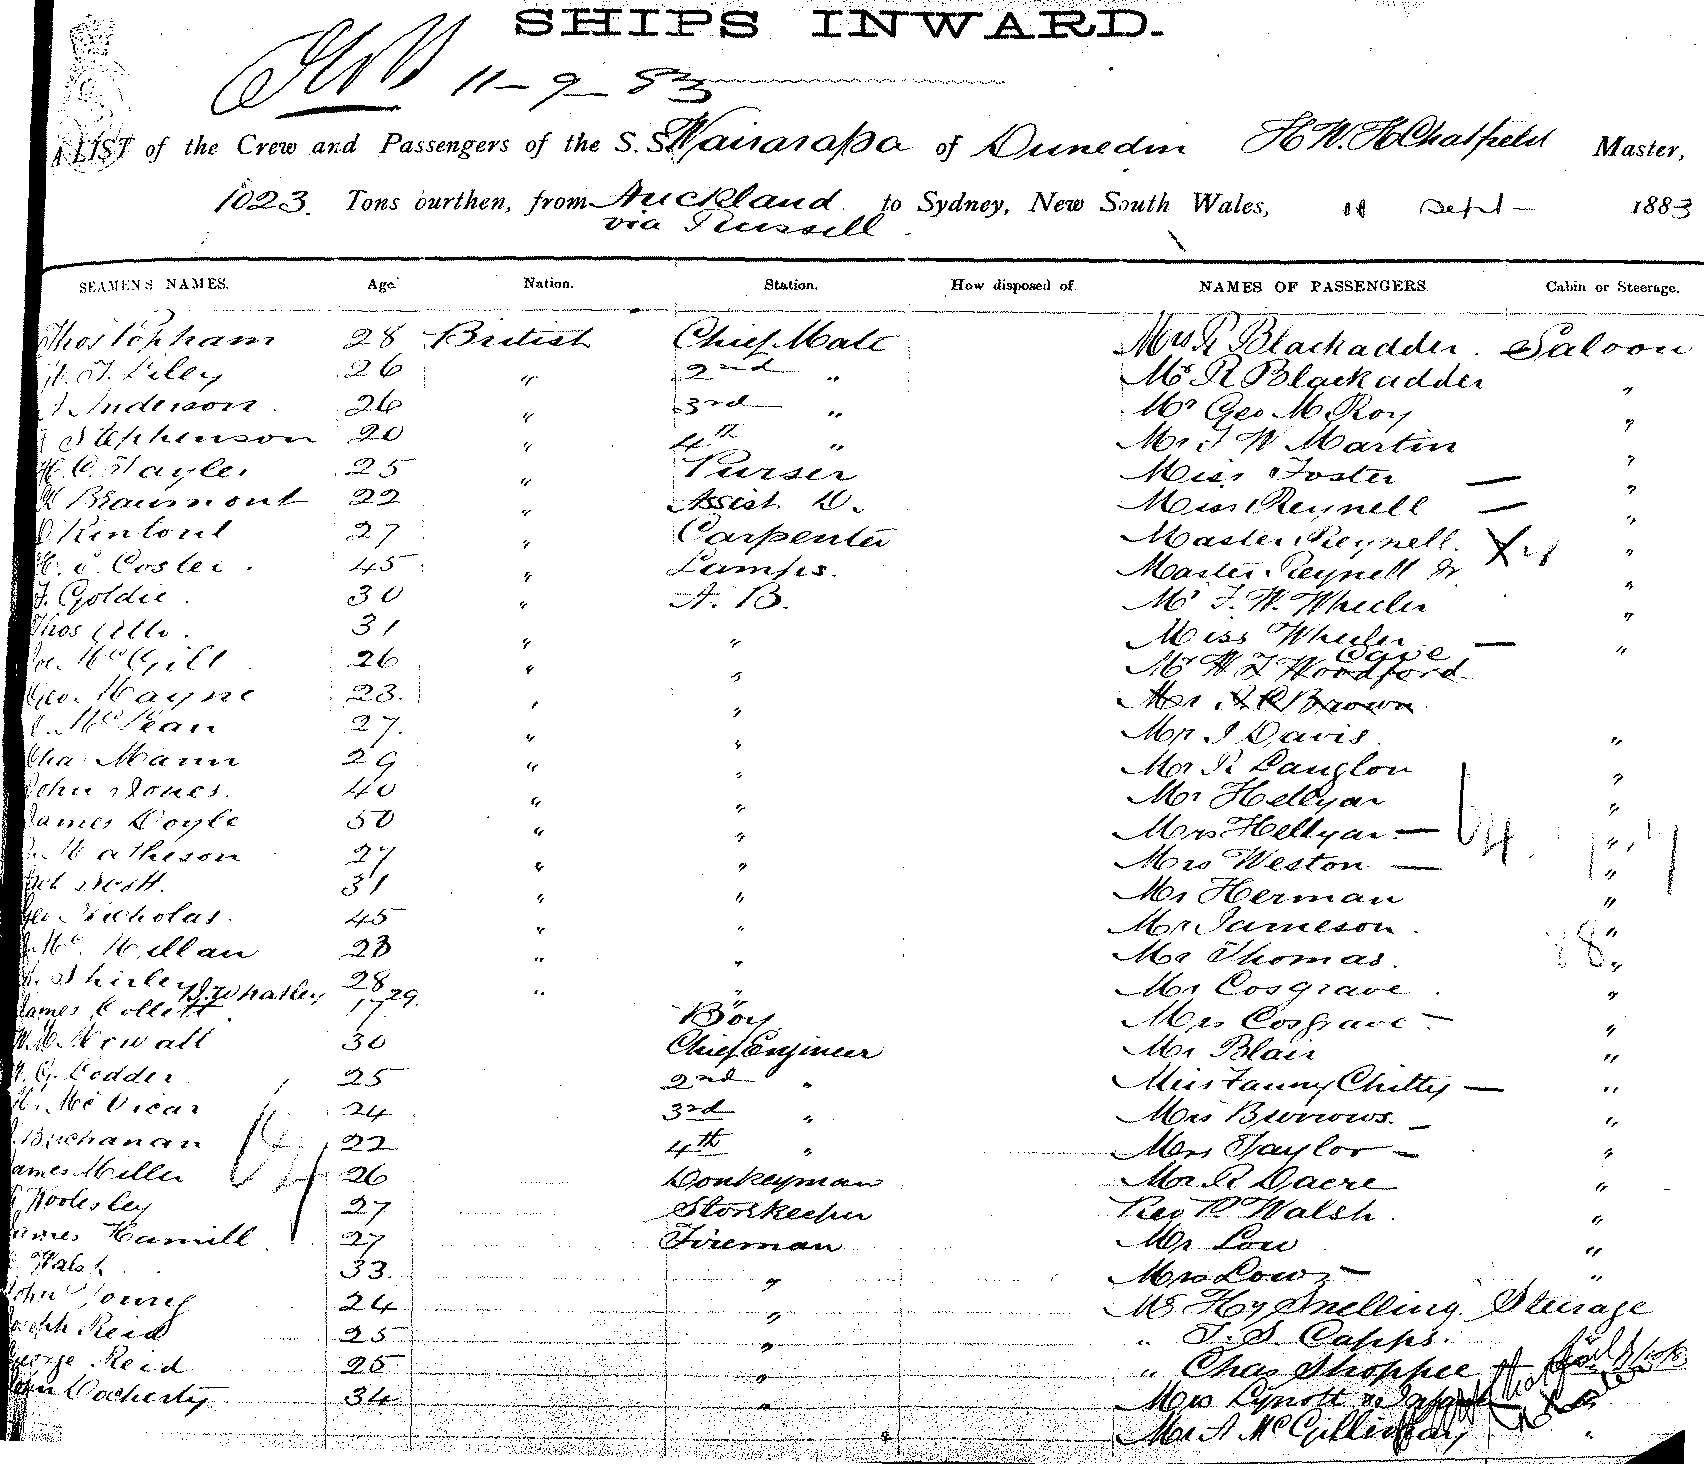 SHIPS INWARD.
11-9-83
A LIST of the Crew and Passengers of the S.S. Wairarapa of Dunedin H W. H Chatfield Master,
1023. Tons burthen, from Auckland to Sydney, New South Wales, 11 Sept 1883
via Russell
SEAMENS NAMES. Age Nation. Station. How disposed of. NAMES OF PASSENGERS Cabin or Steerage.
Thos Topham 28 British Chief Mate Mrs R Blackadder. Saloon
Liley 26 " 2nd " Mr R Blackadder "
Anderson 26 " 3rd " Mr Geo McRoy "
Stephenson 20 " 4th " Mr J W Martin "
H. C. Tayler 25 " Purser Miss Foster — "
Beaumont 22 " Assist D. Miss Reynell — "
Rintoul 27 " Carpenter Master Reynell. "
Coster 45 " Lamps. Master Reynell Jr "
J. Goldie 30 " A. B. Mr J. W. Wheeler "
Thos 31 " " Miss Wheeler — "
McGill 26 " " Mr W J Woodford Cave
Geo. Mayne 23. " " Mr Brown
McBean 27. " " Mr J Davis "
Cha. Mann 29 " " Mr R Langlon "
John Jones. 40 " " Mr Hellyar "
James Doyle 50 " " Mrs Hellyar — "
Matheson 27 " " Mrs Weston — "
31 " " Mr Herman "
Geo Nicholas. 45 " " Mr Jameson. "
Mc Millan 23 " " Mr Thomas. "
Shirley J. Whatley 28 29. " " Mr Cosgrave. "
James Collett 17 Boy Mrs Cosgrave — "
Mowatt 30 Chief Engineer Mr Blair "
Lodder 25 2nd " Miss Fanny Chitty — "
McVicar 24 3rd " Mrs Burrows. — "
Buchanan 22 4th " Mrs Taylor — "
James Miller 26 Donkeyman Mr R Dacre "
Woolesley 27 Storekeeper Rev P Walsh. "
James Hamill 27 Fireman Mr Low "
Walsh 33. " Mrs Low — "
John Young 24 " Mr Hy Snelling Steerage
Joseph Reid 25 " " J. S. Capps.
George Reid 25 " " Chas Shoppee
John Docherty 34 " Mrs Lynott
Mr A McGillivray "